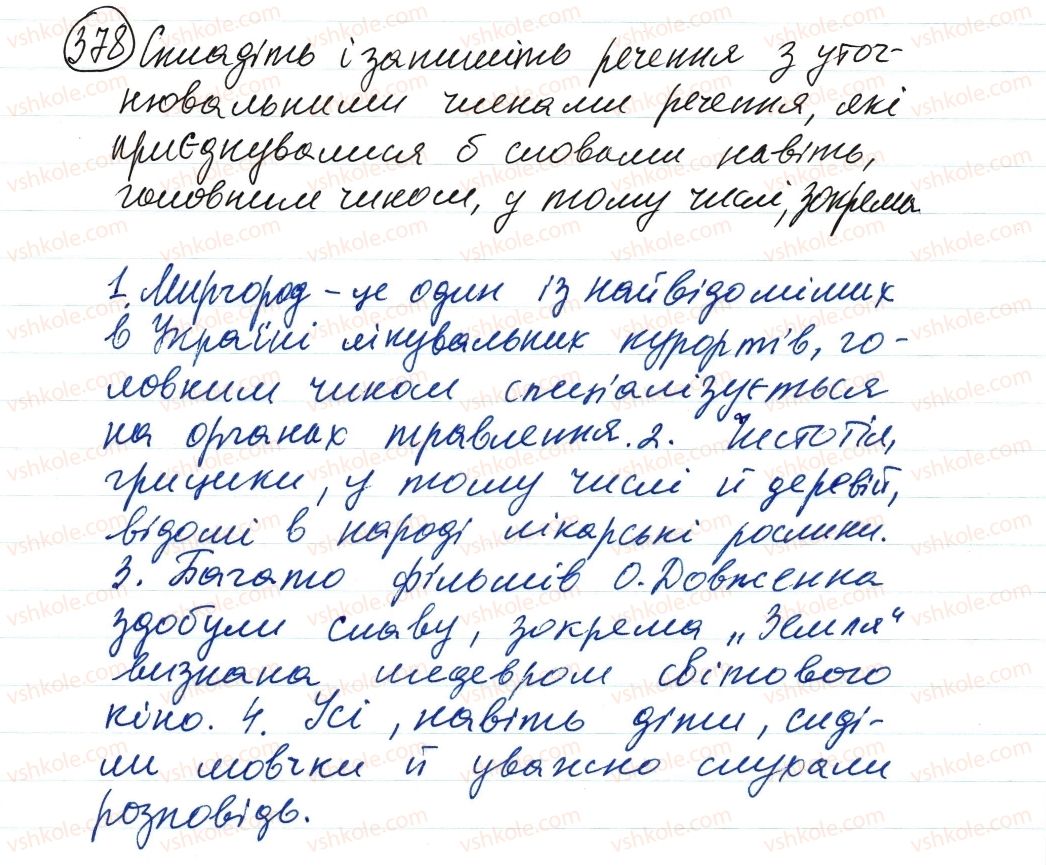 378 Складіть і запишіть речення з уточ-
нювальними членами речення, які
приєднувалися б словами навіть,
головним чином, у тому числі, зокрема
1. Миргород – це один із найвідоміших
в Україні лікувальних курортів, го-
ловним чином спеціалізується
на органах травлення. 2. Чистотіл,
грицики, у тому числі й деревій,
відомі в народі лікарські рослини.
3. Багато фільмів О. Довженка
здобули славу, зокрема „Земля"
визнана шедевром світового
кіно. 4. Усі, навіть діти, сиді-
ли мовчки й уважно слухали
розповідь.